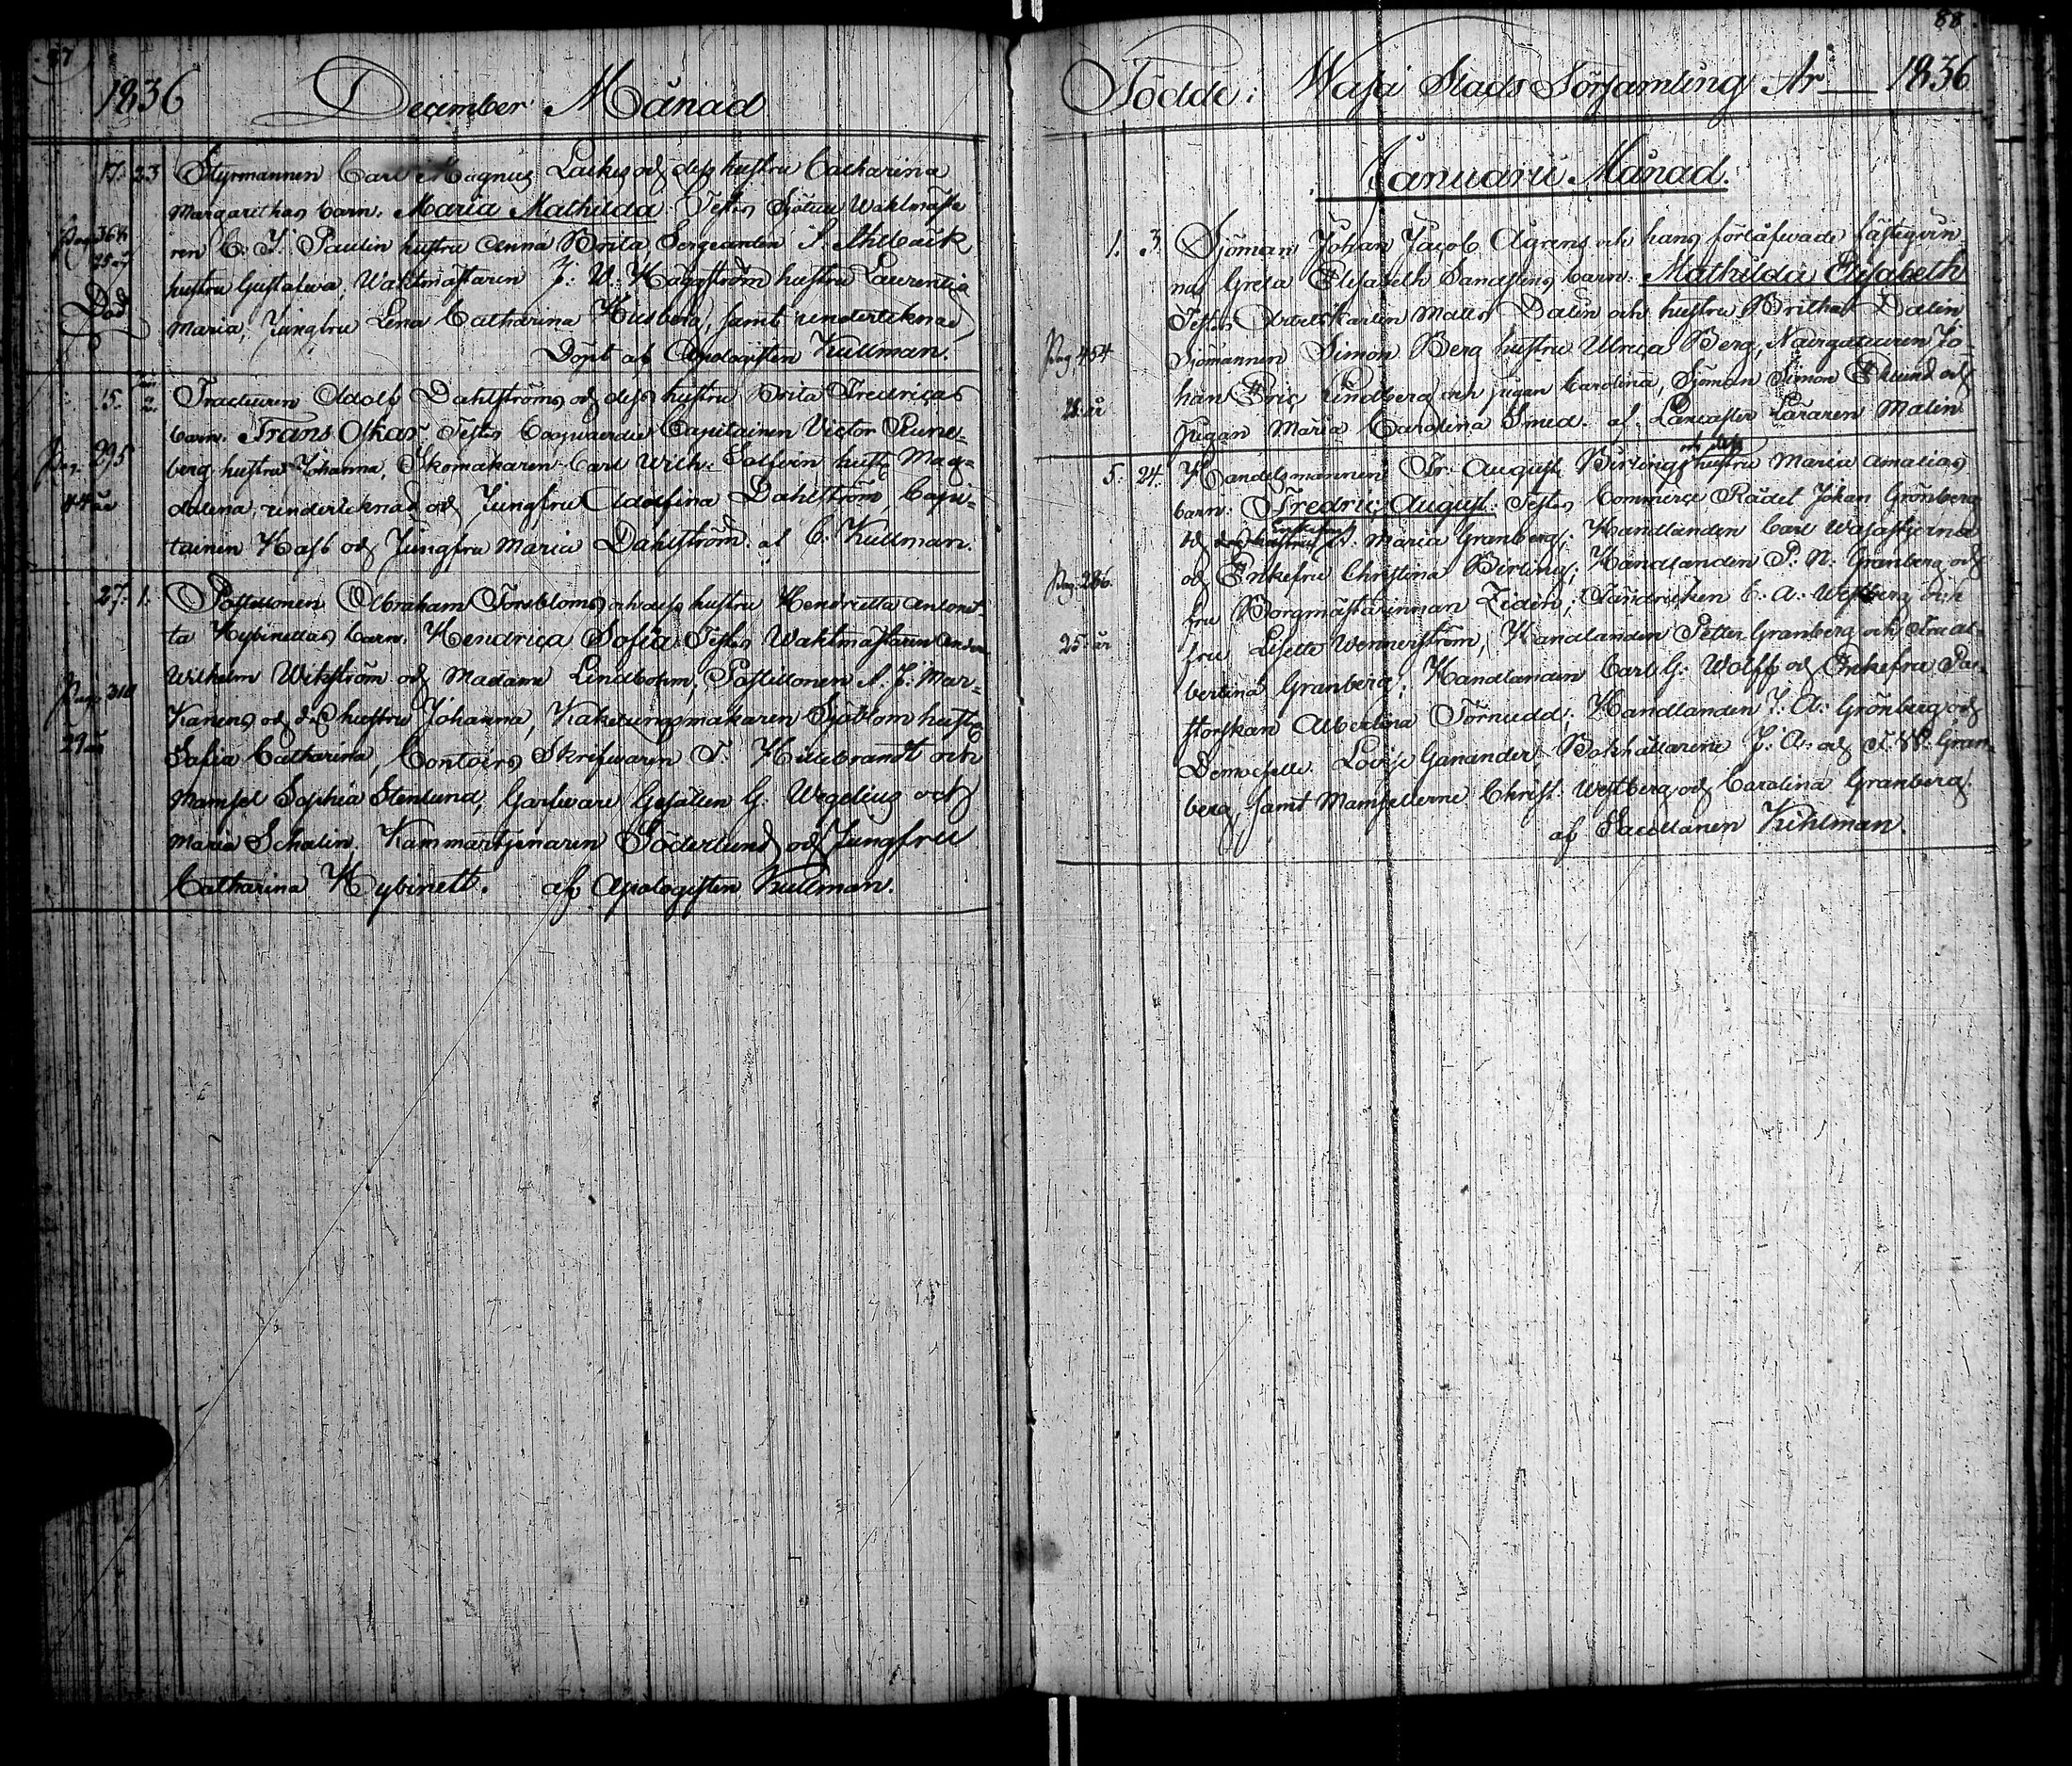 87
1836 December Månad
17. 23 Styrmannen Carl Magnus och dess hustru Catharina
Margarethas barn. Maria Mathilda. Testes Waktmästa
Pag. 364 ren C. J. Paulin hustru Anna Brita, Sergeanten
25 år hustru Gustafwa, Waktmästaren J. W. Häggström hustru Laurentia
Död Maria, Jungfru Lena Catharina Husberg, samt undertecknad
Döpt af Apologisten Kullman.
15. Jan 2. Tracteuren Adolf Dahlströms och dess hustru Brita Fredricas
Pag. 295 barn. Frans Oskar Testes Coopvaerdie Capitainen Victor Rune-
berg hustru Johanna, Skomakaren Carl Wilh: hust: Mag-
44 år dalena, undertecknad och Jungfru Adolfina Dahlström, Capi-
tainen Hast och Jungfru Maria Dahlström. af C. Kullman.
27. 1. Postillonen Abraham Forsbloms och dess hustru Hendrietta Antonet-
ta Hybinettas barn. Hendrica Sofia. Testes Waktmästaren
Pag. 310 Wilhelm Wikström och Madame Lindbohm, Postillonen A. J. Mar-
29 år kanens och d:s hustru Johanna, Kakelungsmakaren Sjöblom hustru
Safia Catharina, Contoirs Skrifwaren F. Hildebrandt och
Mamsel Sophia Stenlund, Garfware Gesällen G. Wegelius och
Maria Schalin. Kammartjenaren Söderlund och Jungfru
Catharina Hybinett. af Apologisten Kullman.
88.
Födde i Wasa Stads Församling År 1836
Januarii Månad.
1. 3. Sjöman Johan Jacob Ågrens och hans förlåfwade fästeqvin-
na Greta Elisabeth Sandstens barn. Mathilda Elisabeth
Testes Arbetskarlen Matts Dalin och hustru Britha Dalin
Pag. 454 Sjömannen Simon Berg hustru Ulrica Berg, Navigateuren Jo-
28 år han Eric Lindberg och pigan Carolina, Sjöman Simon Eklund och
Pigan Maria Carolina Smed. af Lancaster Läraren Malin
5. 24. Handelsmannen Fr. August Birlings och dess hustru Maria Amalias
barn. Fredric August. Testes Commerce Rådet Johan Grönberg
och Maria Granberg; Handlanden Carl Wasastjerna
Pag. 286 och Enkefru Christina Birling; Handlanden P. N. Granberg och
fru Borgmästarinnan Zidén; Fändricken C. A. Westberg och
25 år fru Lisette Wennerström, Handlanden Petter Granberg och Fru Al-
bertina Granberg; Handlanden Carl G. Wolff och Enkefru Pa-
storskan Albertina Törnudd. Handlanden J. A. Grönberg och
Demoiselle Lovise Ganander Bokhållarene J. A. och Gran-
berg, samt Mamsellerne Christ. Westberg och Carolina Granberg.
af Sacellanen Kihlman.